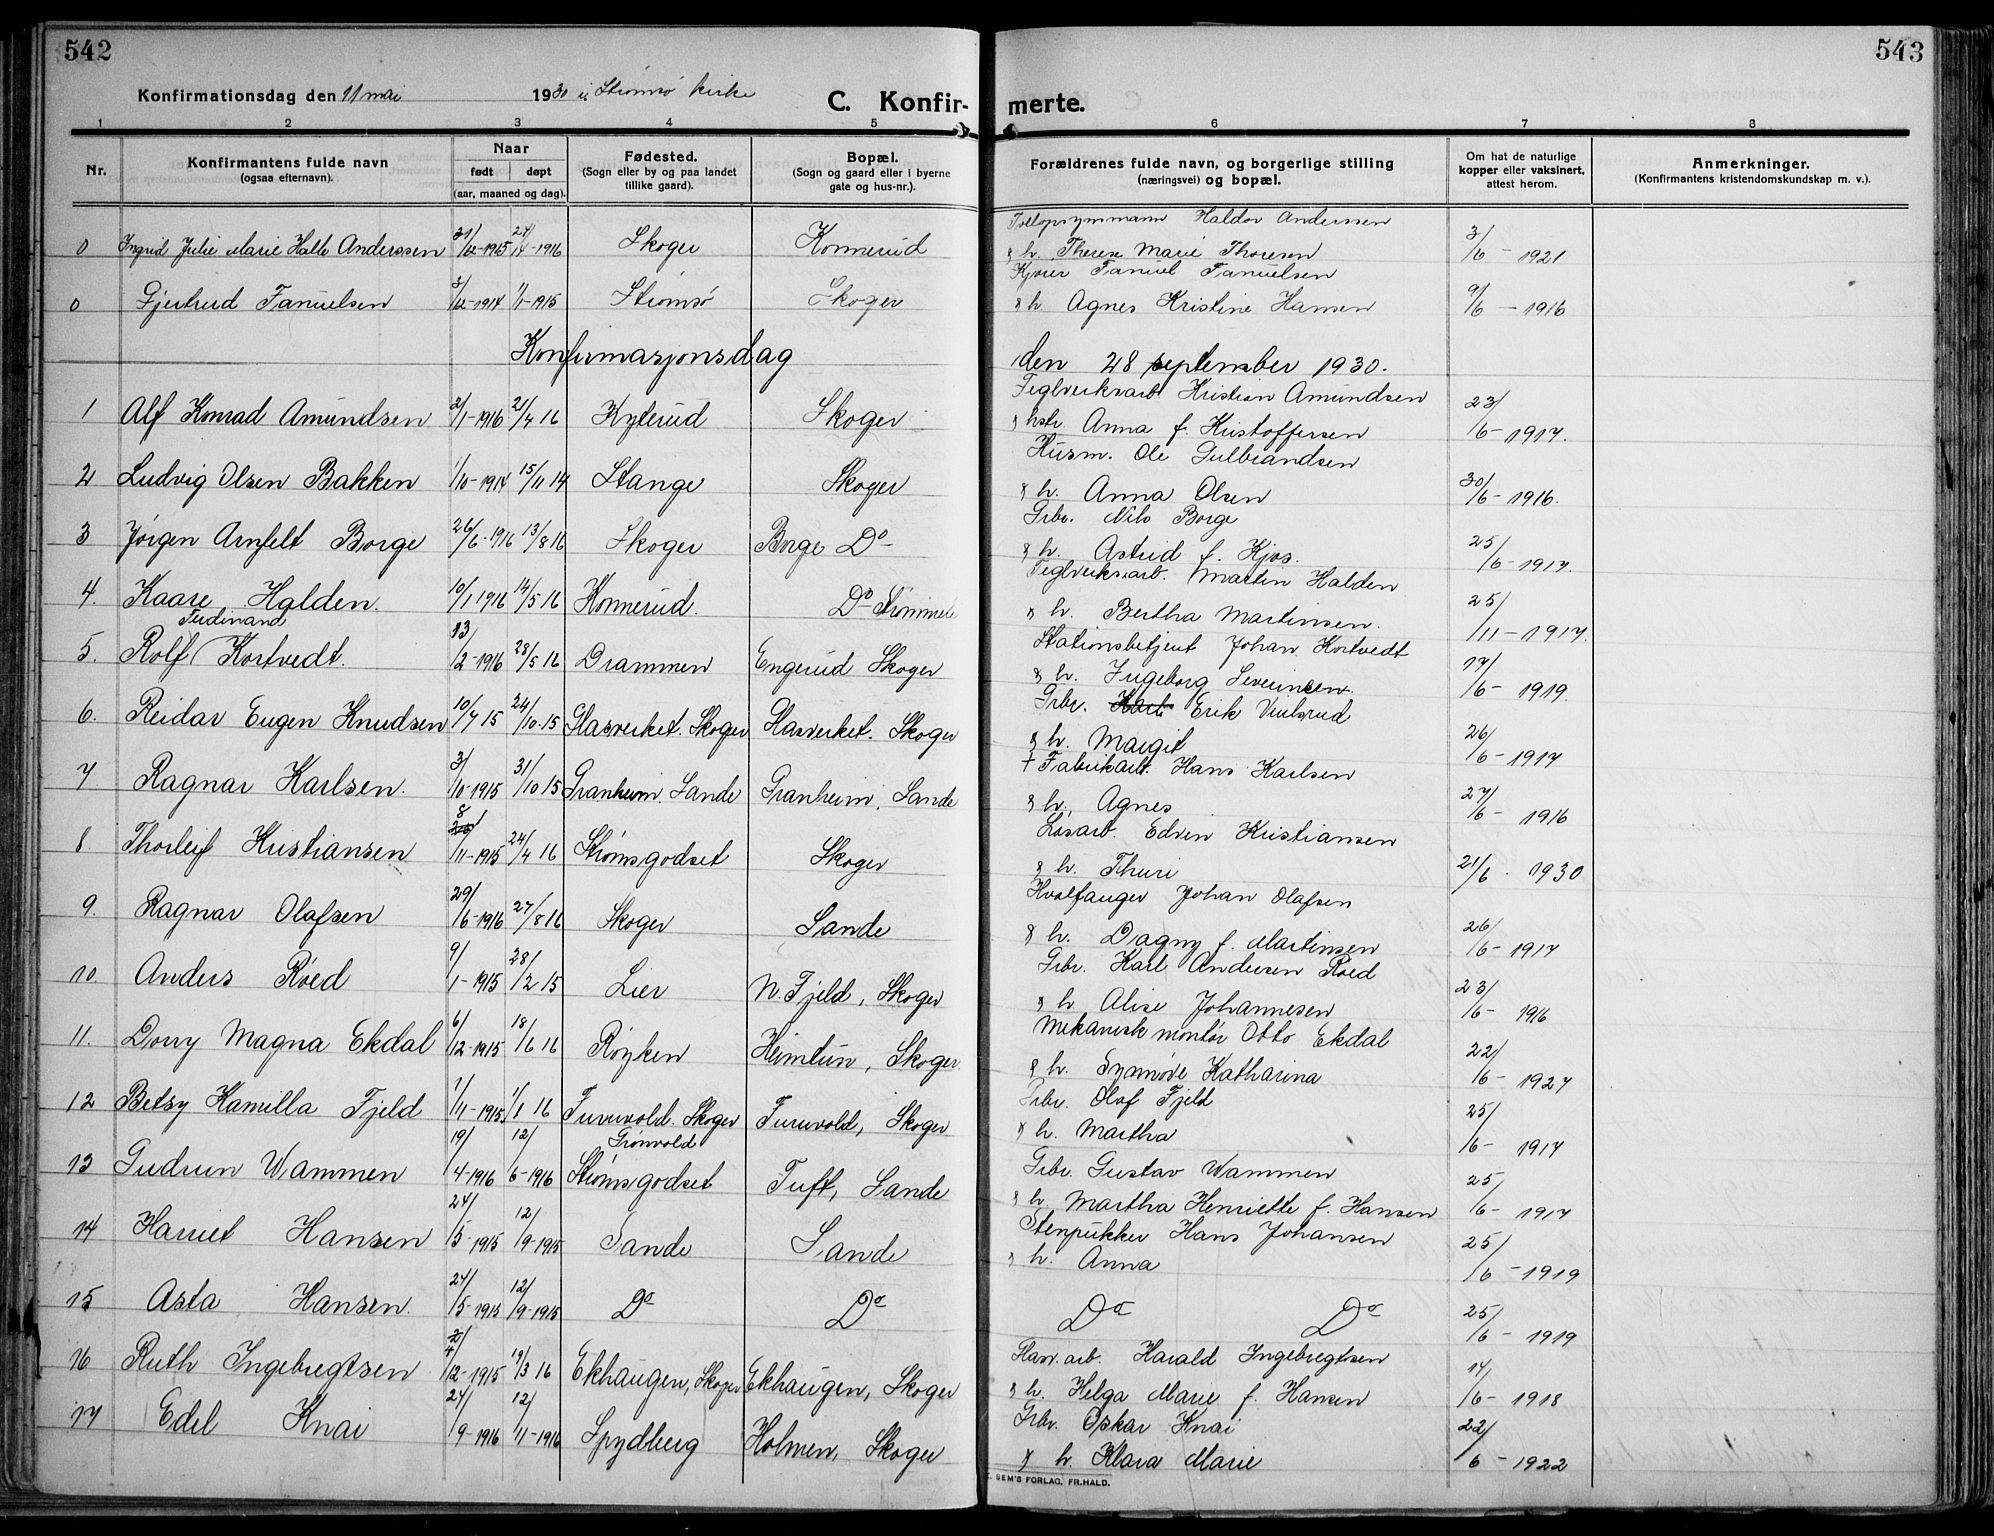 542
543
Konfirmationsdag den 11 mai 1930 i Strømsø kirke
C. Konfir- merte.
1 2 3 4 5 6 7 8
Nr. Konfirmantens fulde navn (ogsaa efternavn). Naar født døpt (aar, maaned og dag). Fødested. (Sogn eller by og paa landet tillike gaard). Bopæl. (Sogn og gaard eller i byerne gate og hus-nr.). Forældrenes fulde navn, og borgerlige stilling (næringsvei) og bopæl. Om hat de naturlige kopper eller vaksinert, attest herom. Anmerkninger. (Konfirmantens kristendomskundskap m. v.).
0 Ingrid Julie Marie Halle Anderssen 31/12-1915 24/4-1916 Skoger Konnerud Haldor Anderssen
& h. Therese Marie Thoresen 3/6-1921
0 Gjertrud Fanuelsen 3/12-1914 1/1-1915 Strømsø Skoger Kjører Fanuel Fanuelsen
& h. Agnes Kristine Hansen 9/6-1916
Konfirmasjonsdag den 28 september 1930.
1 Alf Konrad Amundsen 2/1-1916 21/4 16 Kylerud Skoger Teglverksarb. Kristian Amundsen
& hstr. Anna f. Kristoffersen 23/6-1917.
2 Ludvig Olsen Bakken 1/10-1914 15/11 14 Stange Skoger Husm. Ole Gulbrandsen
& h. Anna Olsen 30/6-1916.
3 Jørgen Arnfelt Borge 26/6-1916 13/8 16 Skoger Borge Do Grbr. Nils Borge
& h. Astrid f. Kjos. 25/6-1917.
4. Kaare Halden. 10/1 1916 14/5 16 Konnerud. Do Teglverksarb. Martin Halden
& h. Bertha Martinsen. 25/11-1917.
5. Rolf Ferdinand Kortvedt. 13/2-1916 28/5 16 Drammen Engerud Skoger Stationsbetjent Johan Kortvedt
& h. Ingeborg Severinsen. 17/6-1919.
6. Reidar Eugen Knudsen 10/7 15 24/10.15 Glasverket. Skoger Glasverket. Skoger Grbr. Karl Erik
& h. Margit 26/6-1917
7 Ragnar Karlsen. 3/10-1915 31/10 15 Granheim. Sande Granheim, Sande + Fabrikarb. Hans Karlsen
& h. Agnes 27/6-1916
8 Thorleif Kristiansen 8/11-1915 24/4 16 Strømsgodset Skoger Løsarb. Edvin Kristiansen
& h. Thuri 21/6.1930
9. Ragnar Olafsen 29/6-1916 27/8 16 Skoger Sande Hvalfanger Johan Olafsen
& h. Dagny f. Martinsen 26/6-1917
10. Anders Røed 9/1-1915 28/2 15 Lier N. Fjeld, Skoger Grbr. Karl Andersen Røed
& h Alise Johannesen 23/6-1916
11. Dorry Magna Ekdal 6/12-1915 18/6 16 Røyken Heimtun, Skoger. Mekanisk montør Otto Ekdal
& h. Synnøve Katharina 22/6-1927
12 Betsy Kamilla Fjeld 1/11-1915 1/1 16 Furuvold. Skoger Furuvold, Skoger Grbr. Olaf Fjeld
& h. Martha 25/6-1917
13 Gudrun Wammen 19/4-1916 12/6-1916 Grønvold Strømsgodset Tuft, Sande Grbr. Gustav Wammen
& h. Martha Henriette f. Hansen 25/6-1917
14 Harriet Hansen 24/5-1915 12/9-1915 Sande Sande Stenpukker Hans Johansen
& h. Anna 25/6-1919
15 Asta Hansen. 24/5-1915 12/9-1915 Do Do Do Do 25/6-1919
16 Ruth Ingebregtsen 4/12-1915 19/3 16 Ekhaugen, Skoger Ekhaugen, Skoger Glasv.arb. Harald Ingebregtsen
& h. Helga Marie f. Hansen 14/6-1918
17 Edel Knai 24/9-1916 12/11-1916 Spydberg Holmen, Skoger Grbr. Oskar Knai
& h. Klara Marie 22/6-1922
SEM'S FORLAG, FR.HALD.